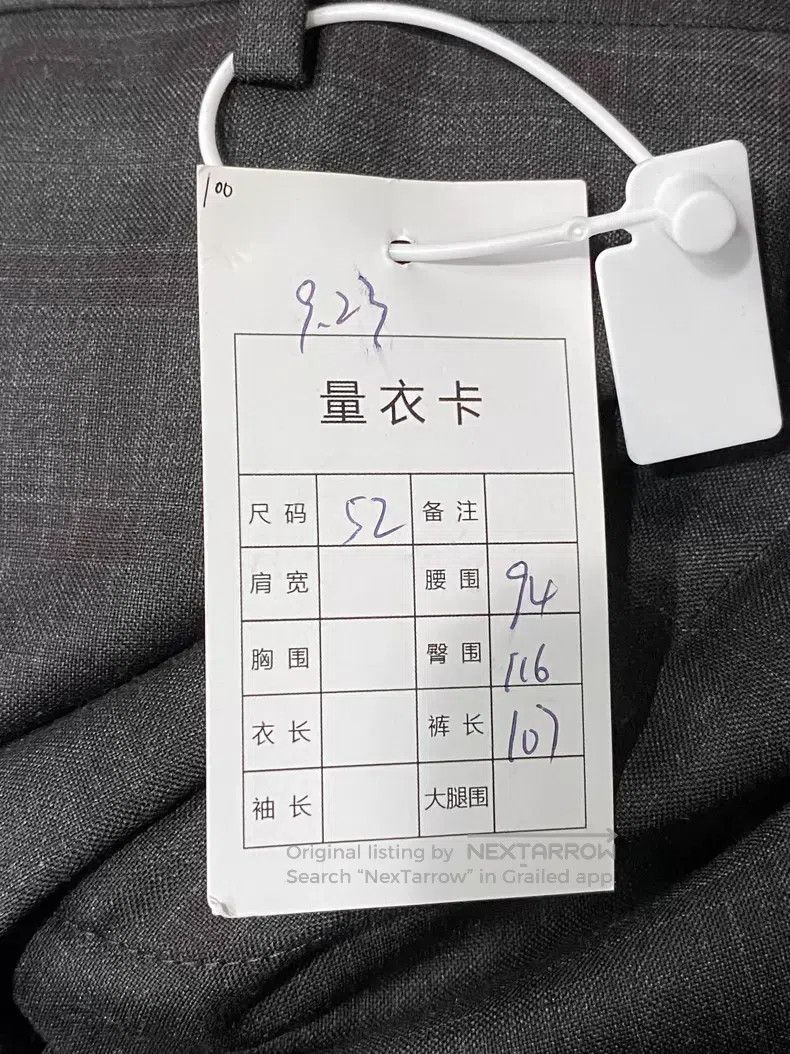 100
9.23
量衣卡
尺码 52 备注
肩宽 腰围 94
胸围 臀围 116
衣长 裤长 107
袖长 大腿围
Original listing by NEXTARROW
Search “NexTarrow” in Grailed app